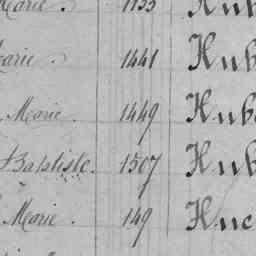 Marie. 1135 Hub
Marie. 1441 Hub
Marie. 1449 Hub
Baptiste. 1507 Hub
Marie. 149 Huc